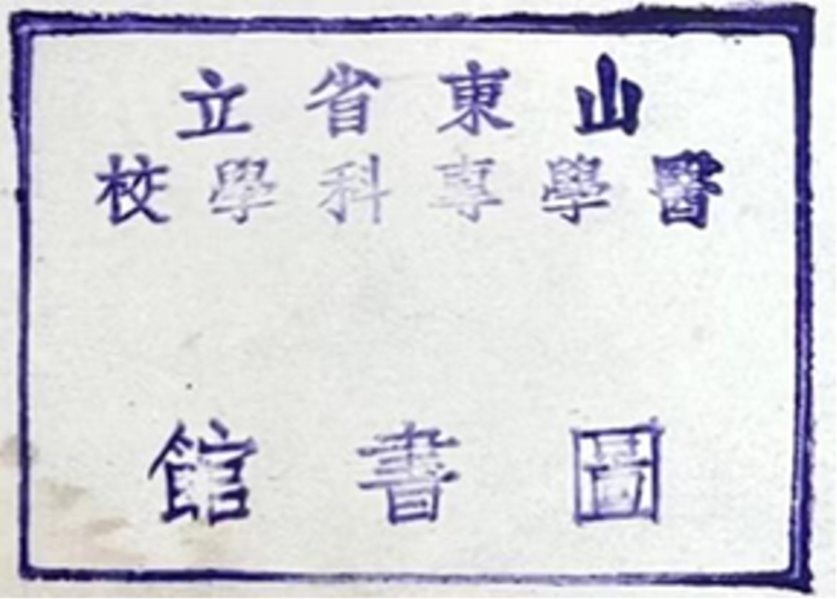 山東省立
醫學專科學校
圖書館